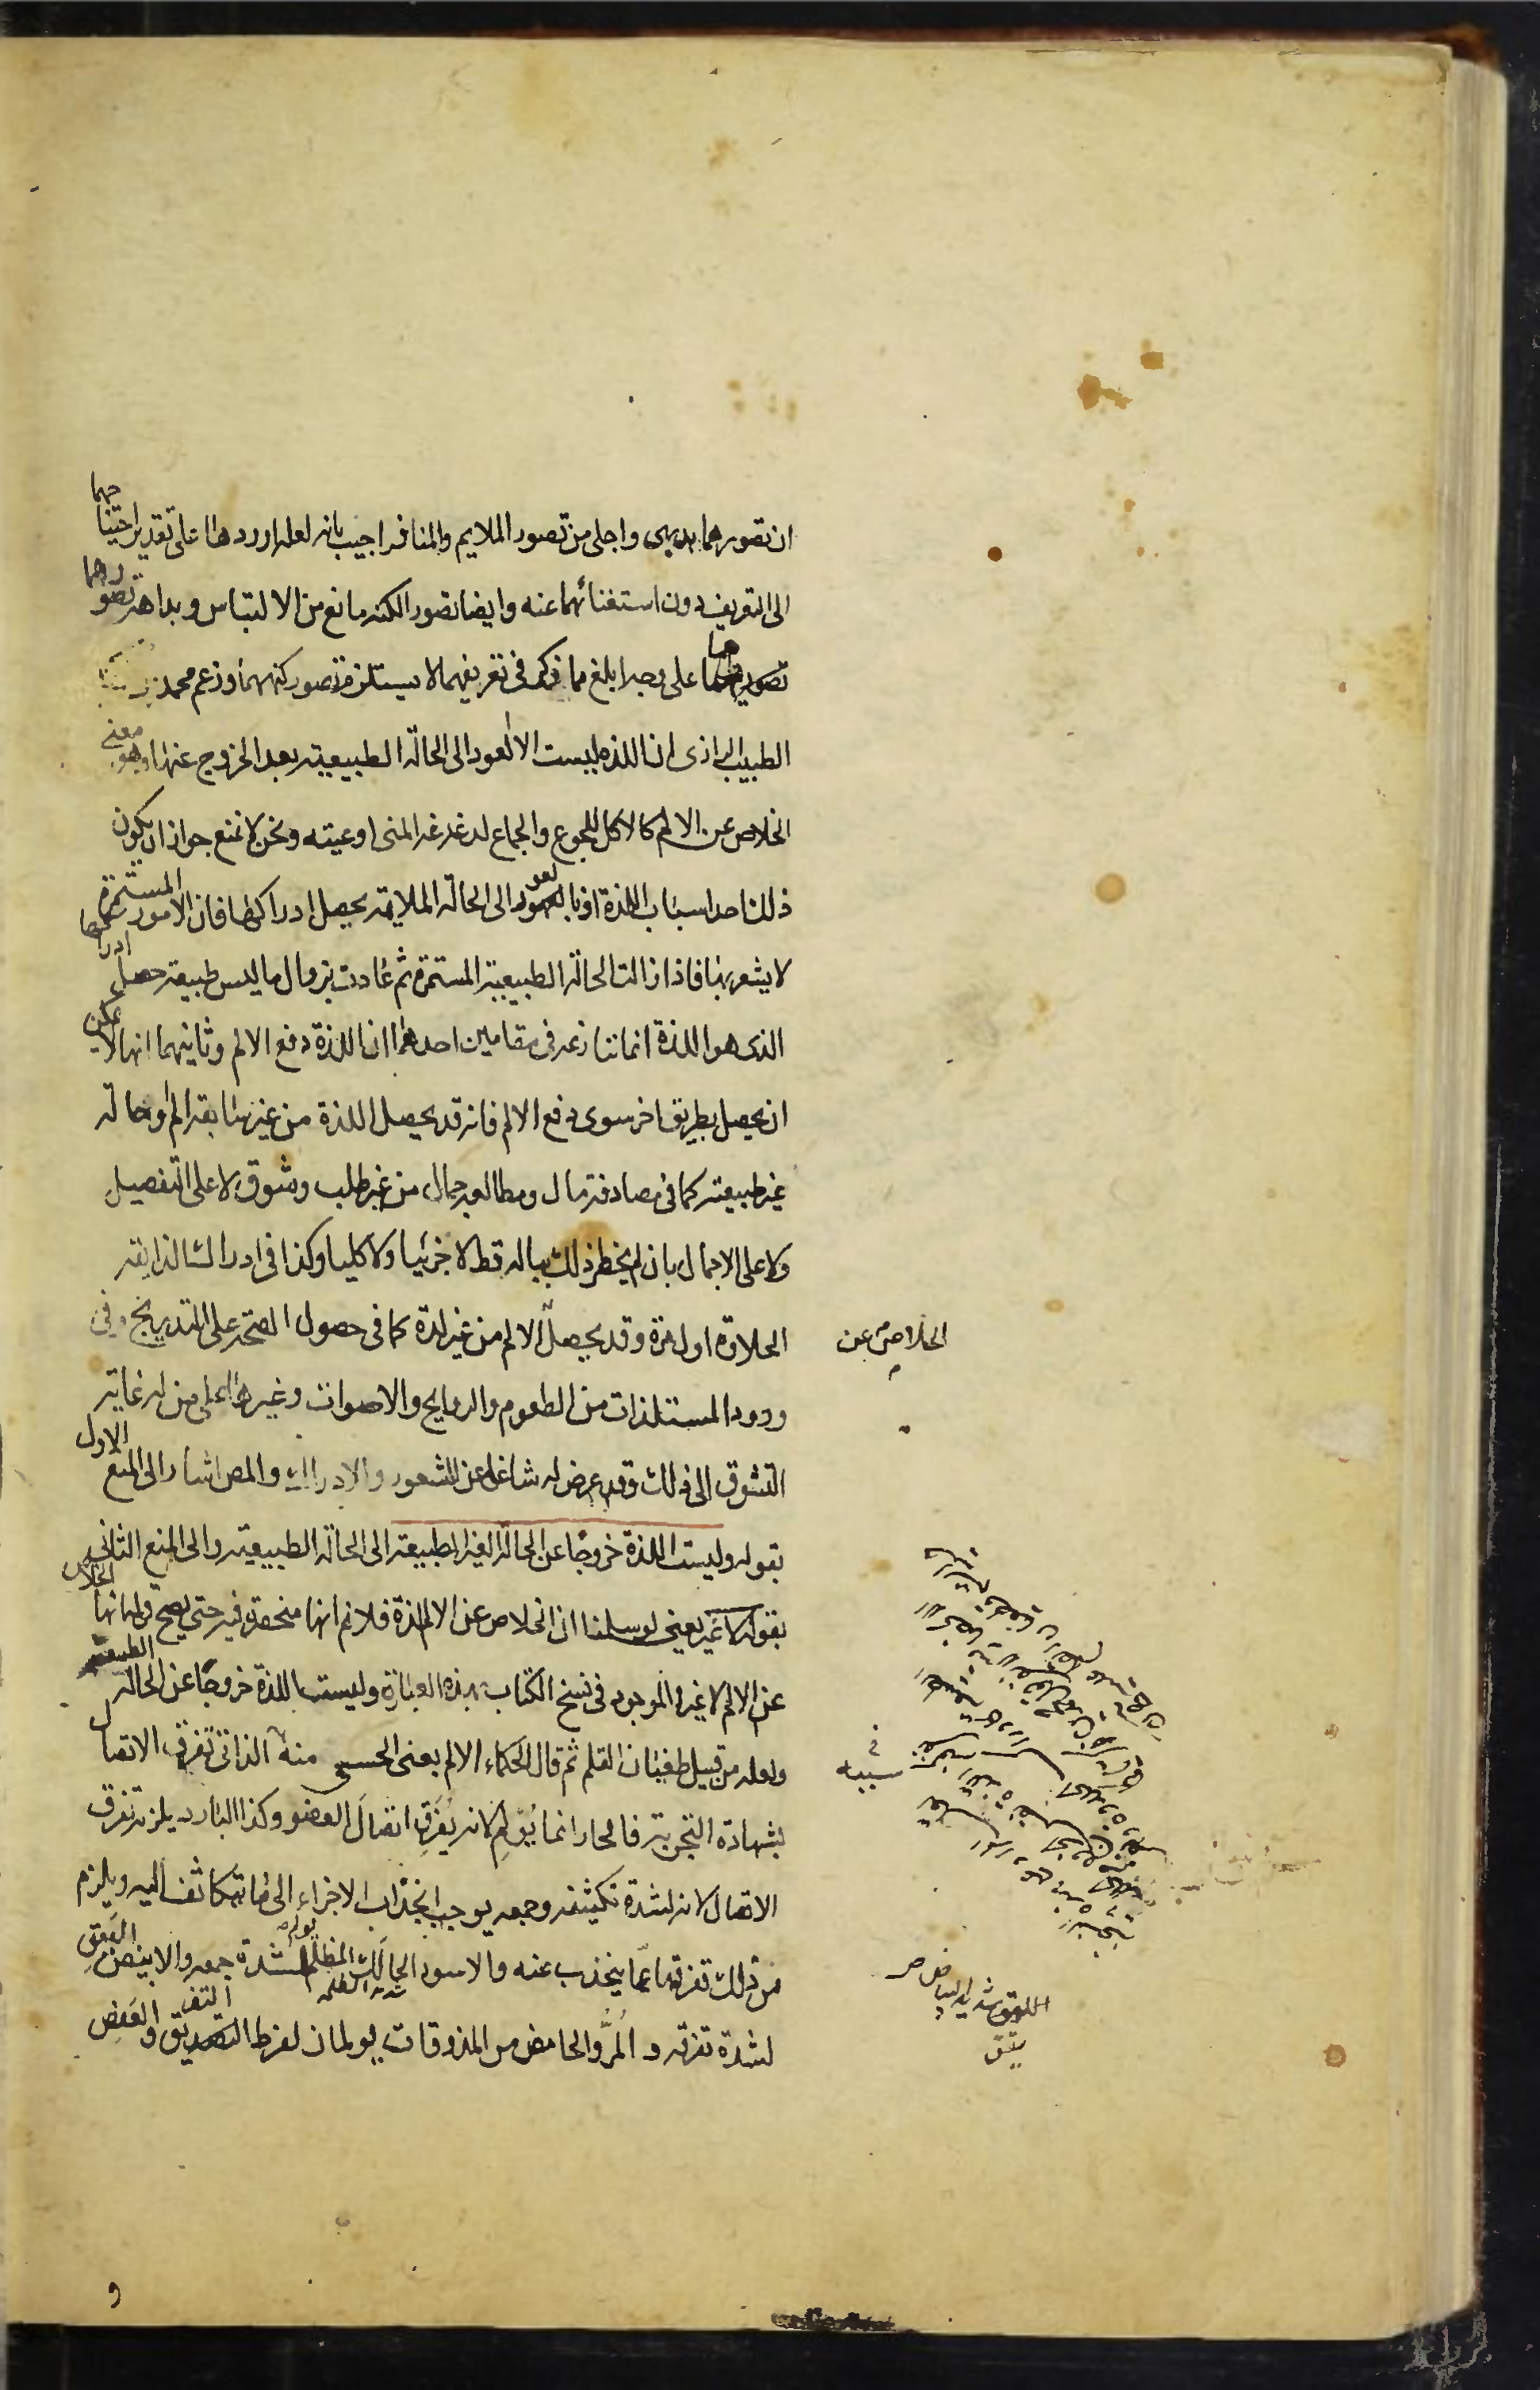 ان تصورهما بديهى واجلى من تصور الملايم والمنافر اجيب بانه لعله اوردها على تقدير احتياجهما
الى التعريف دون استغنائهما عنه وايضا تصور الكنه مانع من الالتباس وبداهة تصورهما
تصورهما على وجه ابلغ مما ذكر فى تعريفهما لا يستلزم تصور كنههما وزعم محمد بن
الطبيب الرازى ان اللذة ليست الا العود الى الحالة الطبيعية بعد الخروج عنها وهو معنى
الخلاص عن الالم كالاكل للجوع والجماع لدغدغة المنى اوعيته ونحن لا نمنع جواز ان يكون
ذلك احد اسباب اللذة اذ بالعود الى الحالة الملايمة يحصل ادراكها فان الامور المستمرة
لا يشعر بها فاذا زالت الحالة الطبيعية المستمرة ثم عادت بزوال ما ليس طبيعية حصل ادراكها
الذى هو اللذة انما ننازعه فى مقامين احدهما ان اللذة دفع الالم وثانيهما انها لا يمكن
ان يحصل بطريق اخر سوى دفع الالم فانه قد يحصل اللذة من غير سابقة الم او حالة
غير طبيعية كما فى مصادفة مال ومطالعة جمال من غير طلب وشوق لا على التفصيل
ولا على الاجمال بان لم يخطر ذلك بباله قط لا جزئيا ولا كليا وكذا فى ادراك الذايقة
الحلاوة اول مرة وقد يحصل الالم من غير لذة كما فى حصول الصحة على التدريج وفى
الخلاص عن
ورود المستلذات من الطعوم والروايح والاصوات وغيرها على من له غاية
التشوق الى ذلك وقد عرض له شاغل عن الشعور والادراك والمص اشار الى المنع الاول
بقوله وليست اللذة خروجا عن الحالة الغير الطبيعية الى الحالة الطبيعية والى المنع الثانى
بقوله لا غير يعنى لو سلمنا ان الخلاص عن الالم لذة فلا نم انها منحصرة فيه حتى يصح قوله انها الخلاص
عن الالم لا غير والموجود فى نسخ الكتاب بهذه العبارة وليست اللذة خروجا عن الحالة الطبيعية
ولعله من قبيل طغيان القلم ثم قال الحكماء الالم يعنى الحسى منه الذاتى تفرق الاتصال
فى سببه
بشهادة التجربة فالحار انما يؤلم لانه يفرق اتصال العضو وكذا البارد يلزمه تفرق
الاتصال لانه لشدة تكثيفه وجمعه يوجب انجذاب الاجزاء الى ما تتكاثف اليه ويلزم
من ذلك تفرقها عما ينجذب عنه والاسود الحالك المظلم يولم لشدة جمعه والابيض اليقق
شديد الظلمة
اليقق شديد البياض ص
يقق
لشدة تفرقه والمر والحامض من المذوقات يولمان لفرط التفريق والعفص
و